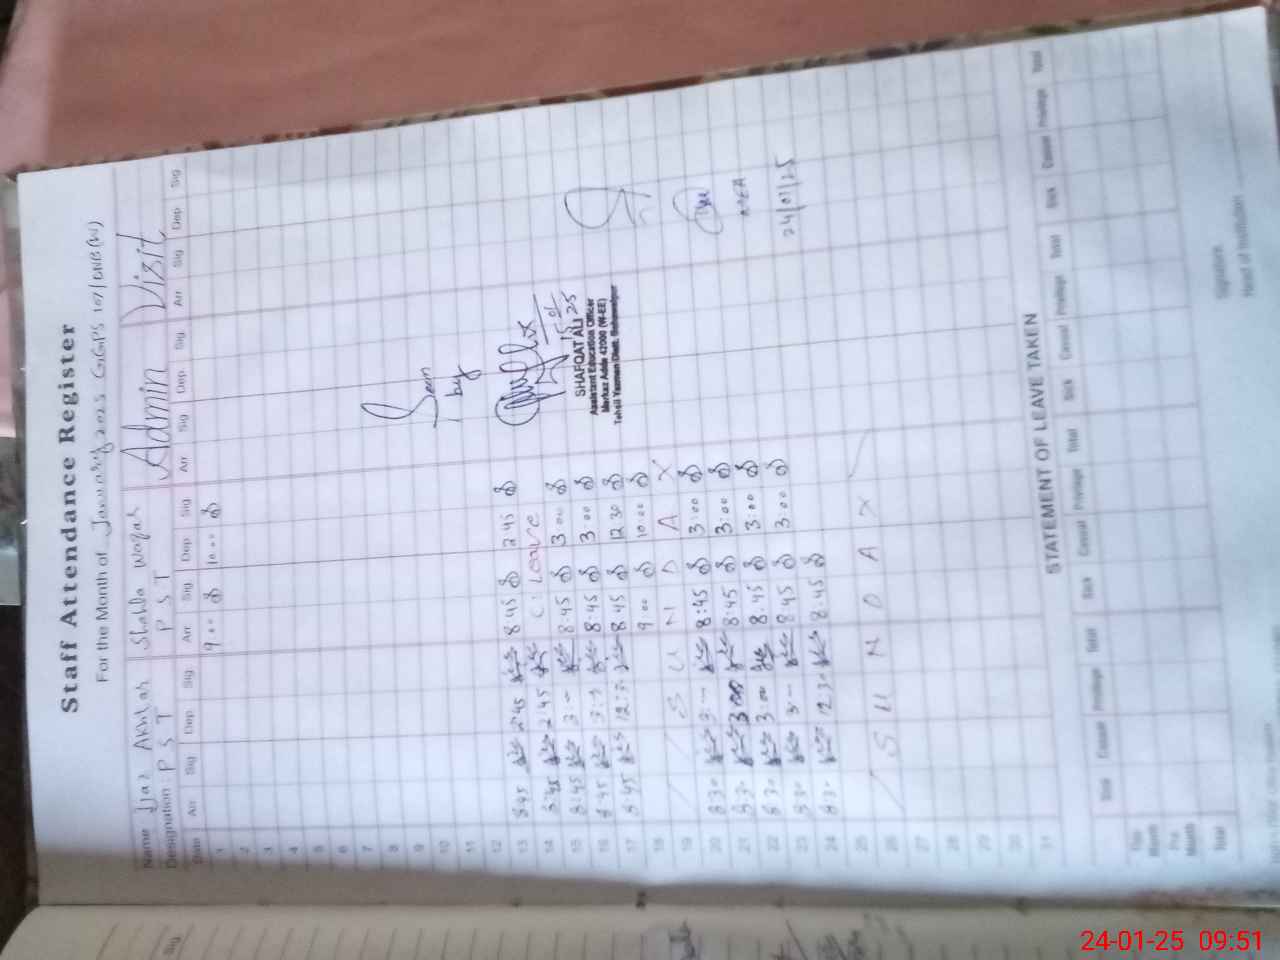 Staff Attendance Register
For the Month of January 2025 GGPS 107/DNB(W)
Name Ijaz Akhtar Shahla Waqar Admin Visit
Designation: P S T P S T
Date Arr Sig Dep Sig Arr Sig Dep Sig Arr Sig Dep. Sig Arr Sig Dep Sig
1 9:00 10:00
2
3
4
5
6
7
8
9
10
11
12
13 8:45 2:45 8:45 2:45
14 8:45 2:45 C: Leave
15 8:45 3:- 8:45 3:00
16 8:45 3:- 8:45 3:00
17 8:45 12:30 8:45 12:30
18 9:00 10:00
19 S U N D A Y
20 8:30 3:- 8:45 3:00
21 8:30 3:00 8:45 3:00
22 8:30 3:00 8:45 3:00
23 8:30 3:- 8:45 3:00
24 8:30 12:30 8:45
25
26 S U N D A Y
27
28
29
30
31
Seen
by
15/01/25
SHAFQAT ALI
Assistant Education Officer
Markaz Adda 42000 (W-EE)
Tehsil Yazman Distt. Bahawalpur
MEA
24/01/25
STATEMENT OF LEAVE TAKEN
Sick Casual Privilege Total Sick Casual Privilege Total Sick Casual Privilege Total Sick Casual Privilege Total
This Month
Pre. Month
Total
Signature
Head of Institution
Sig
24-01-25 09:51